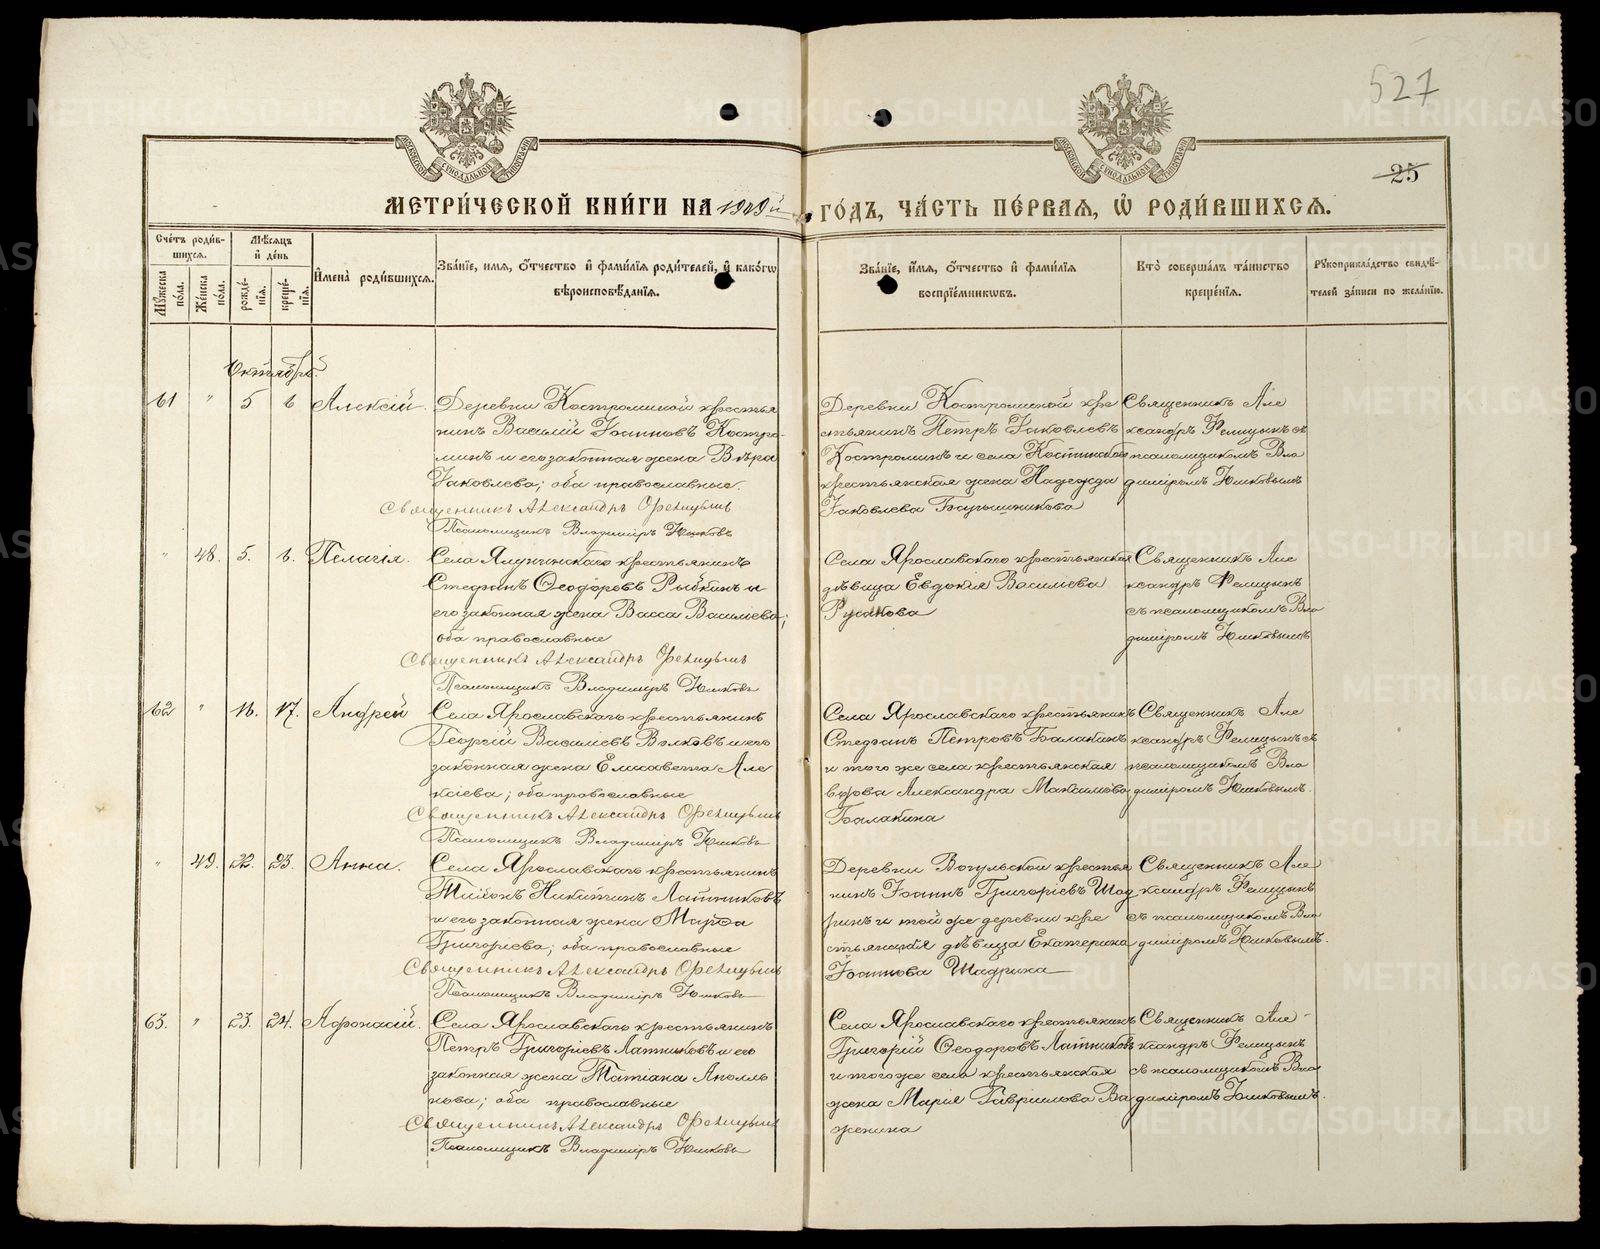 527
25
МЕТРИ́ЧЕСКОЙ КНИ́ГИ НА 1909й ГО́ДЪ, ЧА́СТЬ ПЕ́РВАЯ, Ѡ РОДИ́ВШИХСЯ.
Сче́тъ роди́вшихся.
Му́жеска по́ла.
Же́нска по́ла.
Мѣ́сяцъ и҆ де́нь
рожде́нїя.
креще́нїя.
И҆мена̀ роди́вшихся.
Зва́нїе, и҆мя, ѻ҆́тчество и҆ фами́лїя роди́телей, и҆ како́гѡ вѣроисповѣ́данїя.
Зва́нїе, и҆́мя, ѻ҆́тчество и҆ фами́лїя воспрїе́мникѡвъ.
Кто̀ соверша́лъ та́инство креще́нїя.
Рꙋкоприкла́дство свидѣ́телей за́писи по жела́нїю.
Октябрь.
61 " 5 6 Алексій.
Деревни Костроминой крестья
нинъ Василій Іоанновъ Костро-
минъ и его законная жена Вѣра
Іаковлева; оба православные.
Священникъ Александръ
Псаломщикъ Владиміръ Юшковъ
Деревни Костроминой кре
стьянинъ Петръ Іаковлевъ
Костроминъ и села
крестьянская жена Надежда
Іаковлева
Священникъ Але
ксандръ съ
псаломщикомъ Вла
диміромъ Юшковымъ
" 48. 5. 6. Пелагія.
Села крестьянинъ
Стефанъ Ѳеодоровъ Рыбкинъ и
его законная жена Васса Василіева;
оба православные
Священникъ Александръ
Псаломщикъ Владиміръ Юшковъ
Села Ярославскаго крестьянская
дѣвица Евдокія Василіева
Русакова
Священникъ Але
ксандръ
съ псаломщикомъ Вла
диміромъ Юшковымъ
62 " 16. 17. Андрей
Села Ярославскаго крестьянинъ
Георгій Василіевъ Волковъ и его
законная жена Елисавета Але
ксіева; оба православные
Священникъ Александръ
Псаломщикъ Владиміръ Юшковъ
Села Ярославскаго крестьянинъ
Стефанъ Петровъ Балакинъ
и того же села крестьянская
вдова Александра Максимова
Балакина
Священникъ Але
ксандръ съ
псаломщикомъ Вла
диміромъ Юшковымъ.
" 49. 22. 23. Анна.
Села Ярославскаго крестьянинъ
Никитинъ Латниковъ
и его законная жена Марѳа
Григоріева; оба православные
Священникъ Александръ
Псаломщикъ Владиміръ Юшковъ
Деревни Вогульской крестья
нинъ Іоаннъ Григоріевъ Шад
ринъ и той же деревни кре
стьянская дѣвица Екатерина
Іоаннова Шадрина
Священникъ Але
ксандръ
съ псаломщикомъ Вла
диміромъ Юшковымъ.
63. " 23. 24. Афонасій.
Села Ярославскаго крестьянинъ
Петръ Григоріевъ Латниковъ и его
законная жена Татіана Аполло
нова; оба православные
Священникъ Александръ
Псаломщикъ Владиміръ Юшковъ
Села Ярославскаго крестьянинъ
Григорій Ѳеодоровъ Латниковъ
и того же села крестьянская
жена Марія Гавриилова Ва
женина
Священникъ Але-
ксандръ
съ псаломщикомъ Вла
диміромъ Юшковымъ.
METRIKI.GASO-URAL.RU